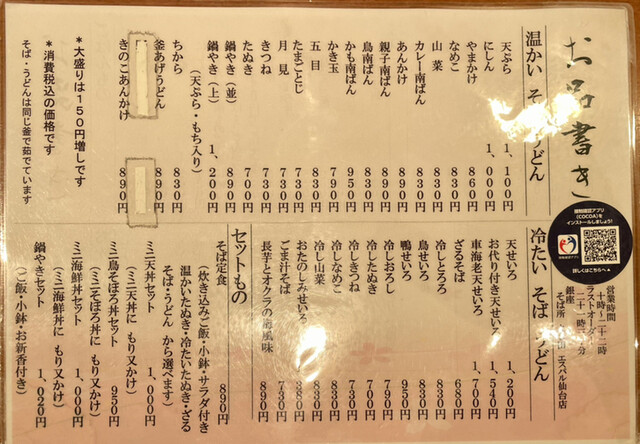 お品書き
温かい そ うどん
天ぷら 1,100円
にしん 1,000円
やまかけ 860円
なめこ 830円
山菜 830円
カレー南ばん 830円
あんかけ 830円
親子南ばん 890円
鳥南ばん 830円
かも南ばん 950円
かき玉 790円
五目 830円
たまごとじ 730円
月見 730円
きつね 730円
たぬき 700円
鍋やき(並) 890円
鍋やき(上) 1,200円
(天ぷら・もち入り)
ちから 830円
釜あげうどん 890円
きのこあんかけ 890円
*大盛りは150円増しです
*消費税込の価格です
そば・うどんは同じ釜で茹でています
接触確認アプリ
(COCOA)を
インストールしましょう!
詳しくはこちらへ▲
営業時間
十時〜二十二時
ラストオーダー
二十一時 分
銀座
そば所 田 エスパル仙台店
冷たい そば うどん
天せいろ 1,200円
お代り付き天せいろ 1,540円
車海老天せいろ
ざるそば 680円
冷しとろろ 830円
鳥せいろ 830円
鴨せいろ 950円
冷しおろし 790円
冷したぬき 700円
冷しきつね 730円
冷しなめこ 830円
冷し山菜 830円
おたのしみせいろ 1,380円
ごま汁そば 730円
長芋とオクラの 風味 890円
セットもの
そば定食 890円
(炊き込みご飯・小鉢・サラダ付き
温かいたぬき・冷たいたぬき・ざる
そば・うどん から選べます)
ミニ天丼セット 1,000円
(ミニ天丼に もり又かけ)
ミニ鳥そぼろ丼セット 950円
(ミニそぼろ丼に もり又かけ)
ミニ海鮮丼セット 1,000円
(ミニ海鮮丼に もり又かけ)
鍋やきセット 1,020円
(ご飯・小鉢・お新香付き)